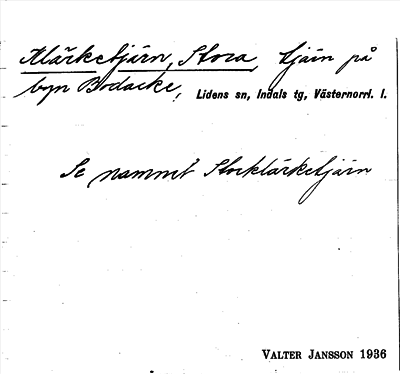 Klärketjärn, Stora, tjärn på
byn Bodacke, Lidens sn, Indals tg, Västernorrl. l.
Se namnet Storklärketjärn
VALTER JANSSON 1936